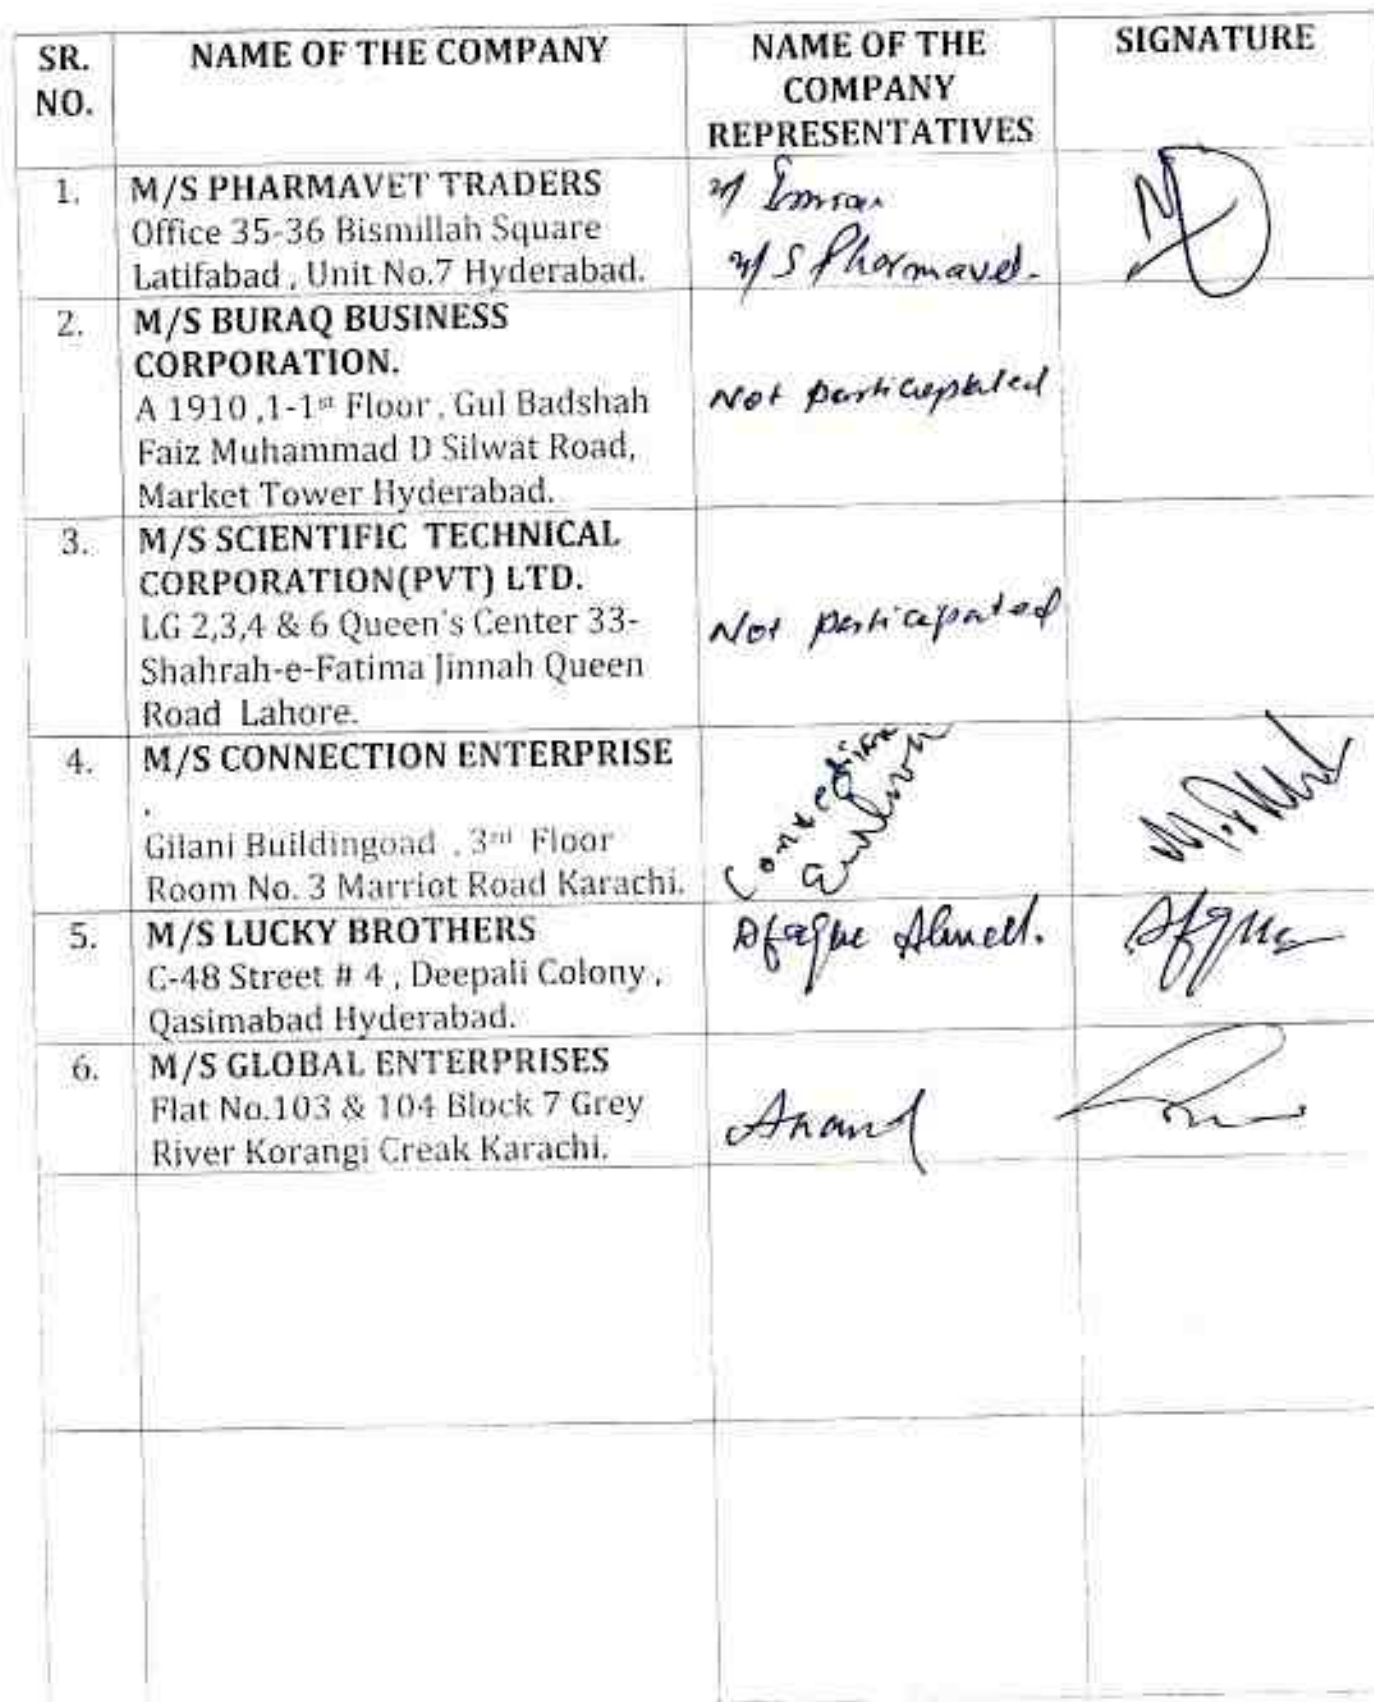 SR. NO.
NAME OF THE COMPANY
NAME OF THE COMPANY REPRESENTATIVES
SIGNATURE
1.
M/S PHARMAVET TRADERS
Office 35-36 Bismillah Square
Latifabad , Unit No.7 Hyderabad.
Imran
M/S Pharmavet.
2.
M/S BURAQ BUSINESS
CORPORATION.
A 1910 ,1-1st Floor , Gul Badshah
Faiz Muhammad D Silwat Road,
Market Tower Hyderabad.
Not participated
3.
M/S SCIENTIFIC TECHNICAL
CORPORATION(PVT) LTD.
LG 2,3,4 & 6 Queen's Center 33-
Shahrah-e-Fatima Jinnah Queen
Road Lahore.
Not participated
4.
M/S CONNECTION ENTERPRISE
.
Gilani Buildingoad , 3rd Floor
Room No. 3 Marriot Road Karachi.
5.
M/S LUCKY BROTHERS
C-48 Street # 4 , Deepali Colony ,
Qasimabad Hyderabad.
Afaque Ahmed.
6.
M/S GLOBAL ENTERPRISES
Flat No.103 & 104 Block 7 Grey
River Korangi Creak Karachi.
Anand